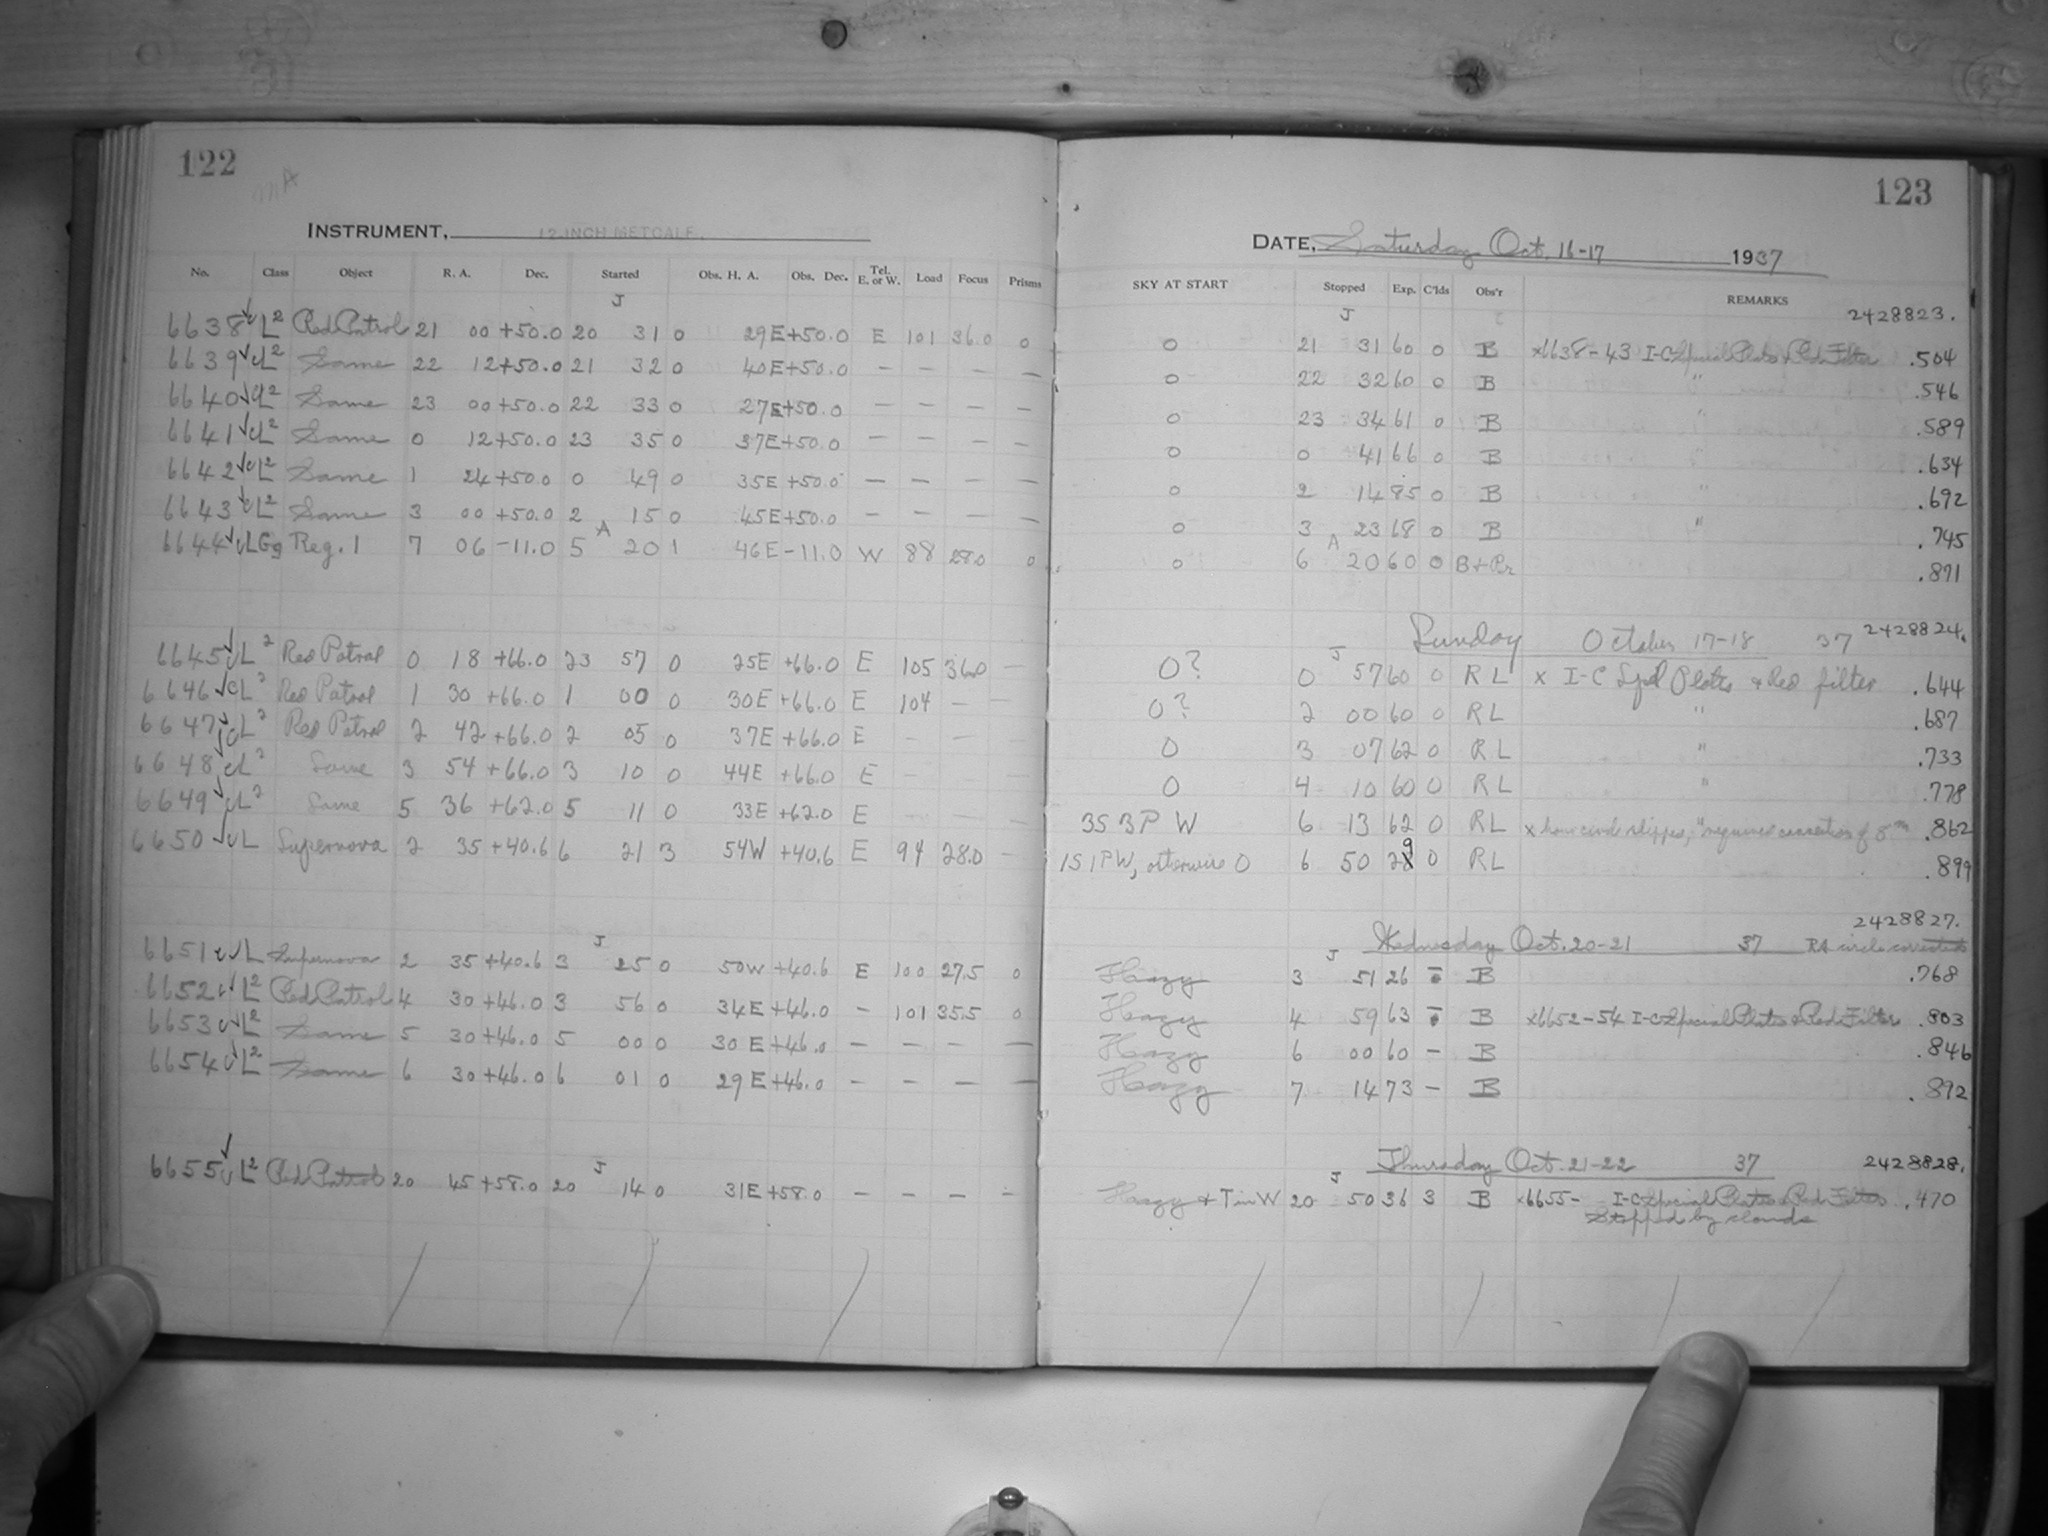 122
MA
INSTRUMENT, 12 INCH METCALF.
No. Class Object R. A. Dec. Started Obs. H. A. Obs. Dec. Tel. E. or W. Load Focus Prisms
J
6638 L² Red Patrol 21 00 +50.0 20 31 0 29E +50.0 E 101 36.0 0
6639 L² Same 22 12 +50.0 21 32 0 40E +50.0 — — — —
6640 L² Same 23 00 +50.0 22 33 0 27E +50.0 — — — —
6641 L² Same 0 12 +50.0 23 35 0 37E +50.0 — — — —
6642 L² Same 1 24 +50.0 0 49 0 35E +50.0 — — — —
6643 L² Same 3 00 +50.0 2 15 0 45E +50.0 — — — —
A
6644 LGg Reg. 1 7 06 -11.0 5 20 1 46E -11.0 W 88 28.0 0
6645 L² Red Patrol 0 18 +66.0 23 57 0 25E +66.0 E 105 36.0 —
6646 L² Red Patrol 1 30 +66.0 1 00 0 30E +66.0 E 104 — —
6647 L² Red Patrol 2 42 +66.0 2 05 0 37E +66.0 E — — —
6648 L² Same 3 54 +66.0 3 10 0 44E +66.0 E — — —
6649 L² Same 5 36 +62.0 5 11 0 33E +62.0 E — — —
6650 L Supernova 2 35 +40.6 6 21 3 54W +40.6 E 94 28.0 —
J
6651 L Supernova 2 35 +40.6 3 25 0 50W +40.6 E 100 27.5 0
6652 L² Red Patrol 4 30 +46.0 3 56 0 34E +46.0 — 101 35.5 0
6653 L² Same 5 30 +46.0 5 00 0 30E +46.0 — — — —
6654 L² Same 6 30 +46.0 6 01 0 29E +46.0 — — — —
J
6655 L² Red Patrol 20 45 +58.0 20 14 0 31E +58.0 — — — —
123
DATE, Saturday Oct. 16-17 1937
SKY AT START Stopped Exp. C'lds Obs'r REMARKS
J 2428823.
0 21 31 60 0 B x6638-43 I-C Special Plates & Red Filter .504
0 22 32 60 0 B " .546
0 23 34 61 0 B " .589
0 0 41 66 0 B " .634
0 2 14 85 0 B " .692
0 3 23 68 0 B " .745
A
0 6 20 60 0 B+Pr .871
Sunday October 17-18 37 2428824.
J
0? 0 57 60 0 RL x I-C Spcl Plates & Red filter .644
0? 2 00 60 0 RL " .687
0 3 07 62 0 RL " .733
0 4 10 60 0 RL " .778
3S 3P W 6 13 62 0 RL x hour circle slipped, requires correction of 8ᵐ .862
1S 1P W, otherwise 0 6 50 29 0 RL .899
2428827.
J Wednesday Oct. 20-21 37 RA circle corrected
Hazy 3 51 26 — B .768
Hazy 4 59 63 — B x6652-54 I-C Special Plates & Red Filter .803
Hazy 6 00 60 — B .846
Hazy 7 14 73 — B .892
J Thursday Oct. 21-22 37 2428828.
Hazy + T in W 20 50 36 3 B x6655- I-C Special Plates & Red Filter .470
Stopped by clouds